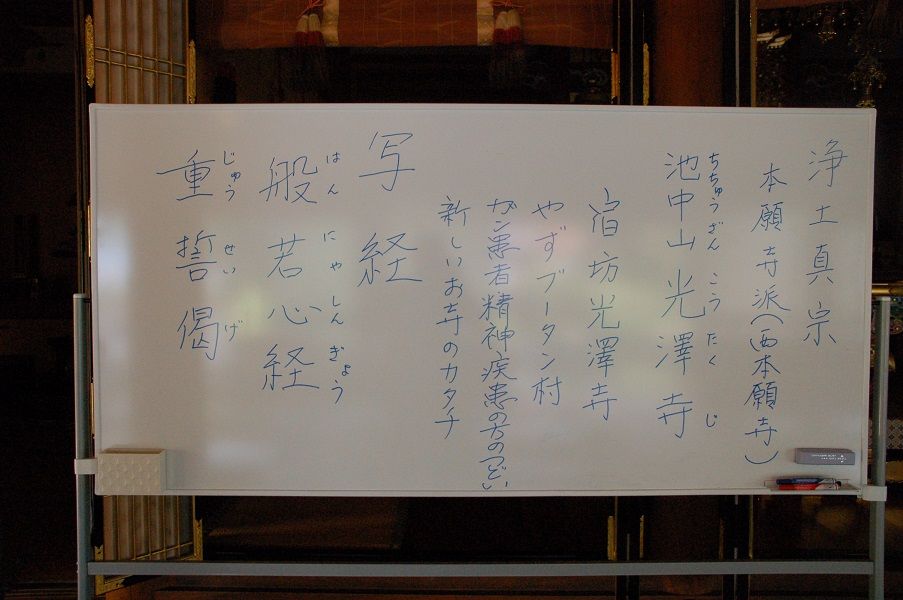 浄土真宗
本願寺派(西本願寺)
ちちゅうざん こうたくじ
池中山 光澤寺
宿坊光澤寺
やずブータン村
ガン患者精神疾患の方のつどい
新しいお寺のカタチ
写経
はんにゃしんぎょう
般若心経
じゅうせいげ
重誓偈